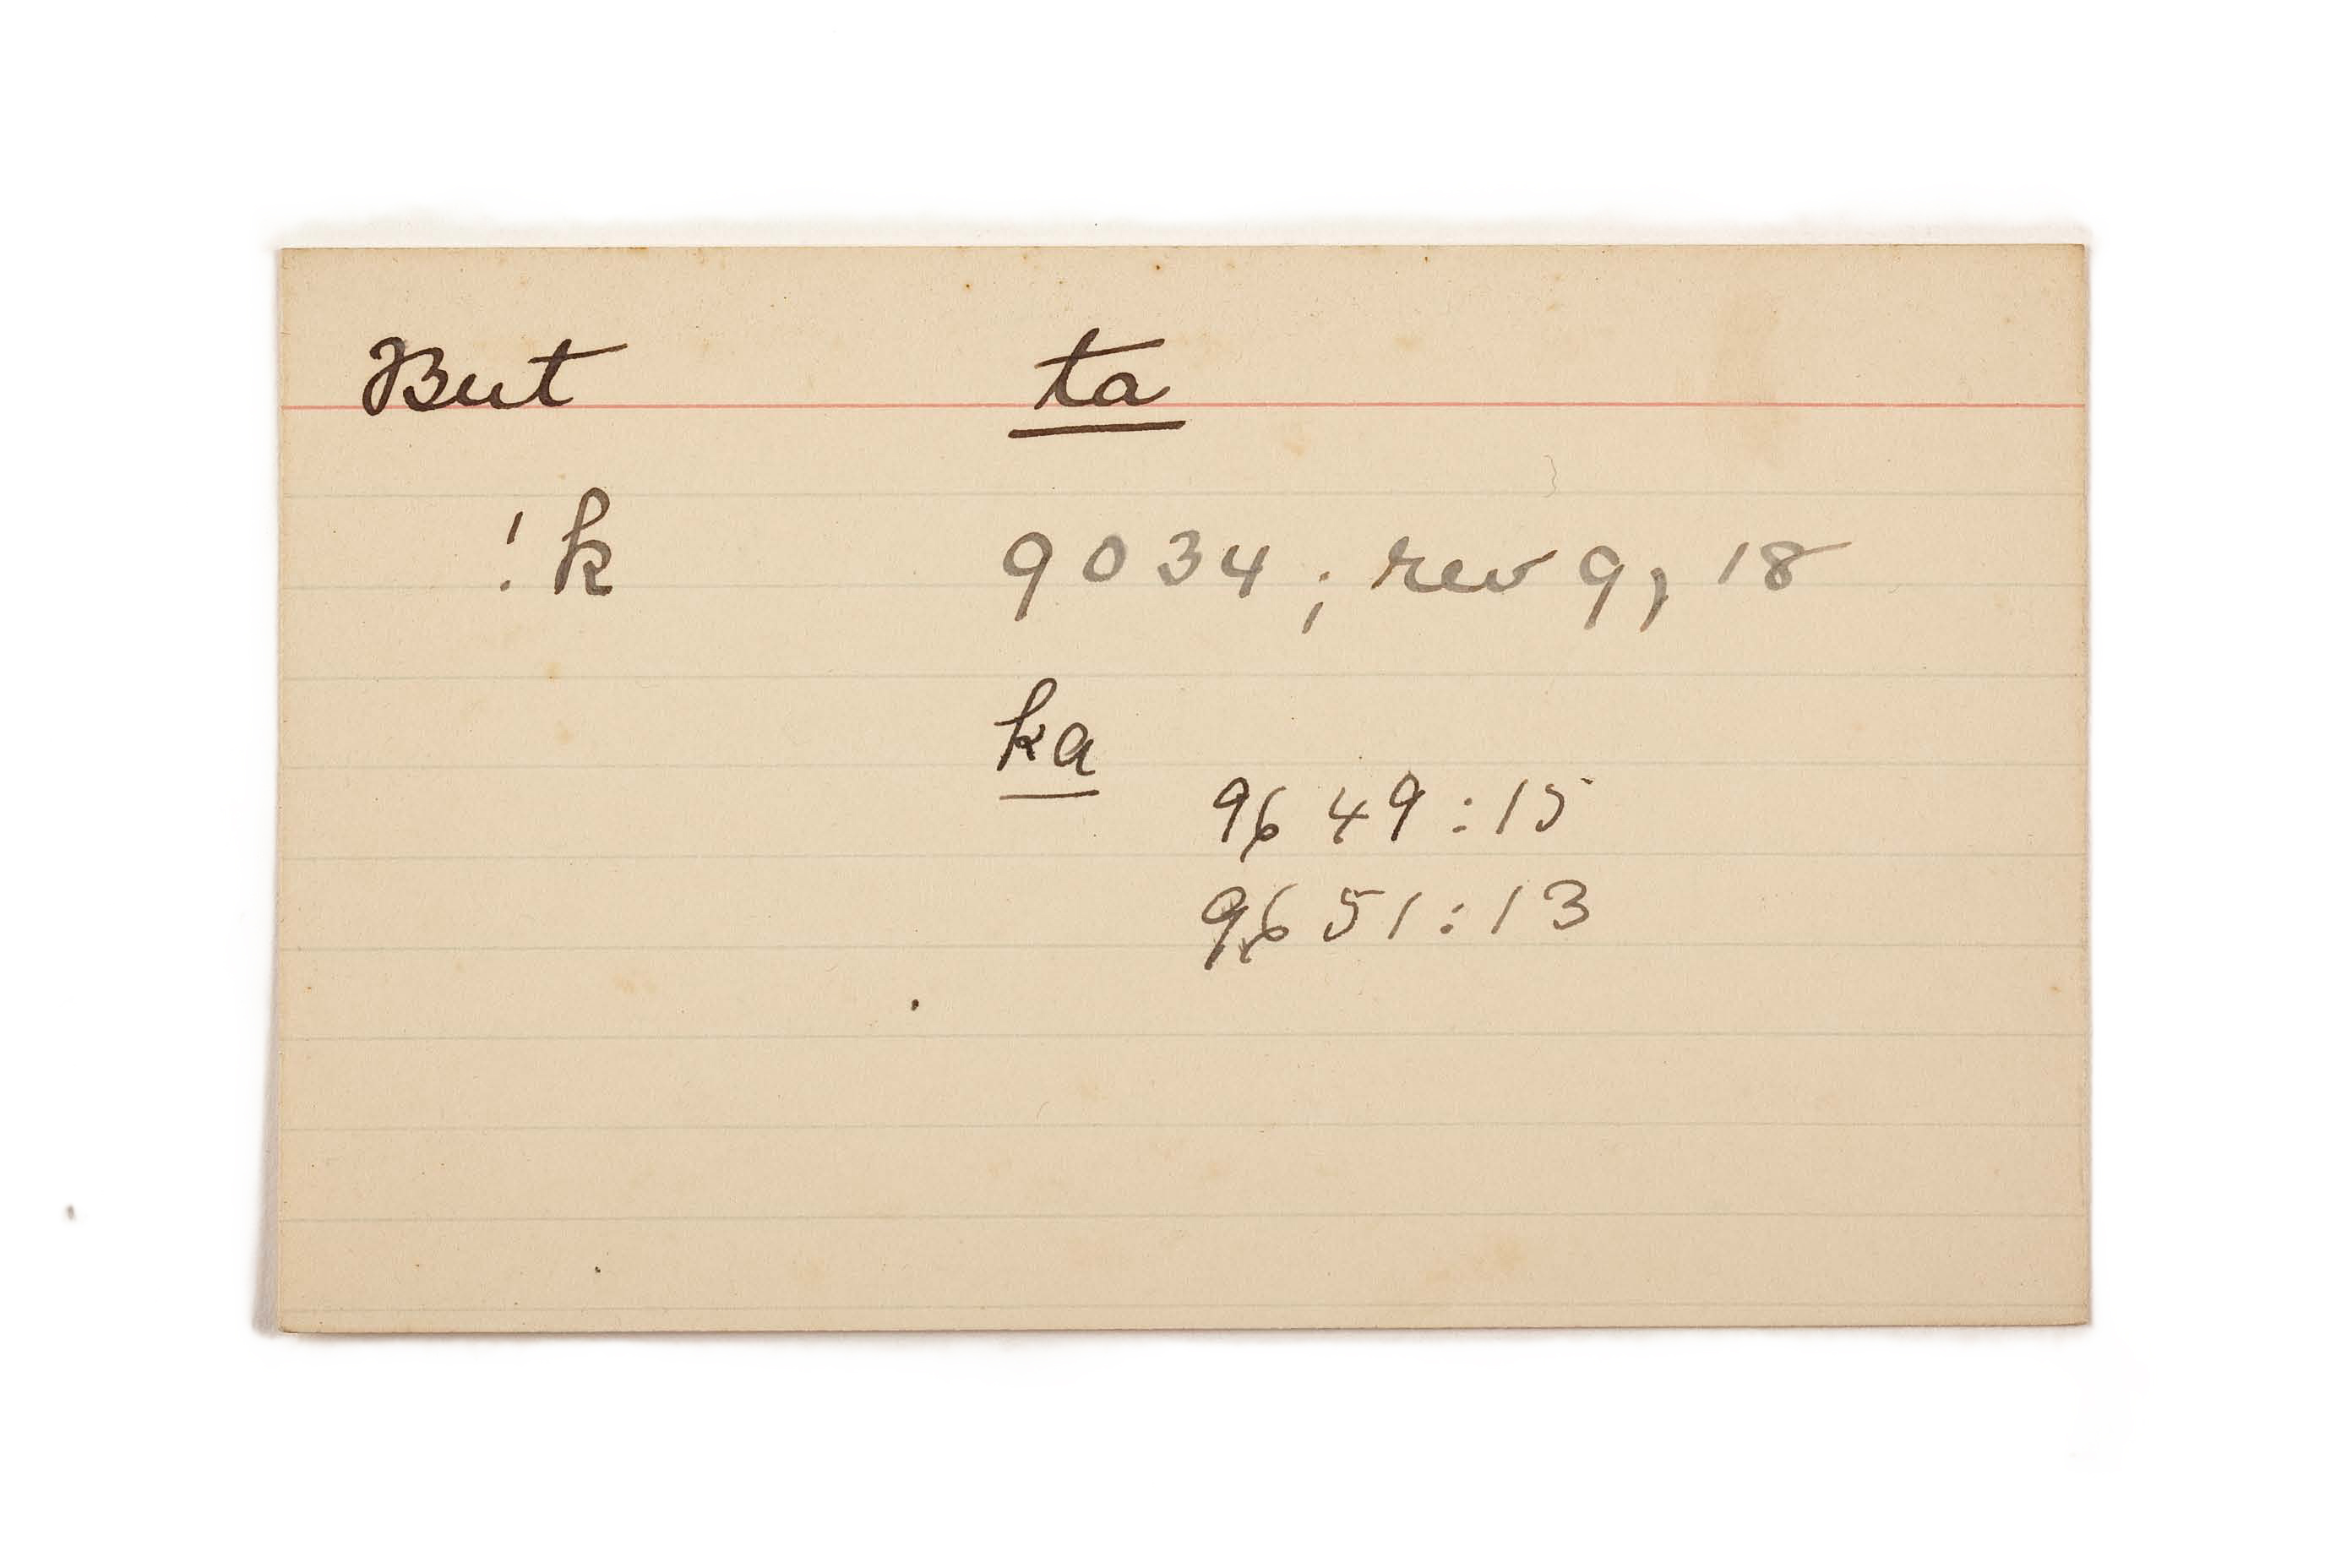 But ta
!k 9034; rev 9, 18
ka
9649:15
9651:13